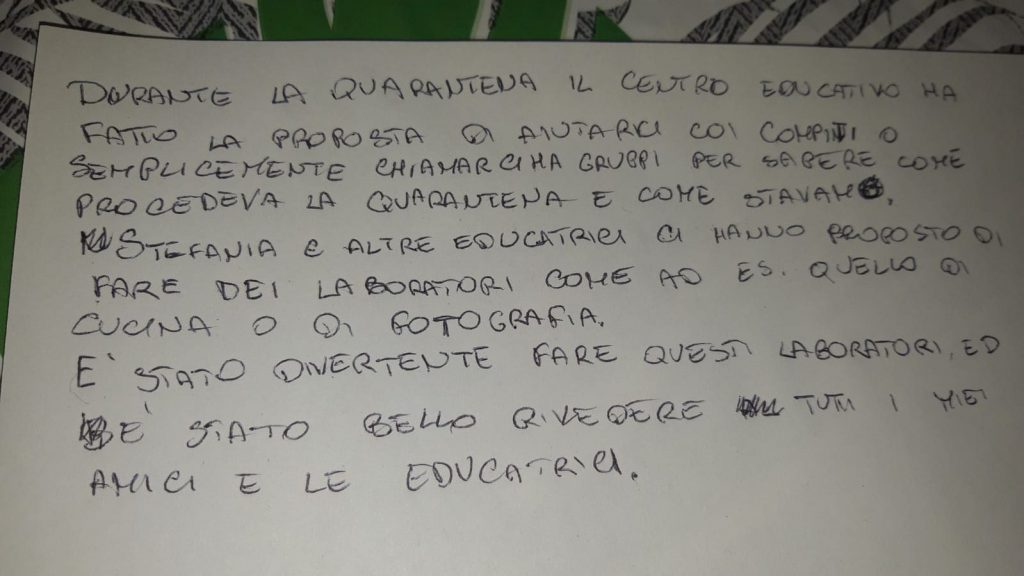 DURANTE LA QUARANTENA IL CENTRO EDUCATIVO HA
FATTO LA PROPOSTA DI AIUTARCI COI COMPITI O
SEMPLICEMENTE CHIAMARCI HA GRUPPI PER SAPERE COME
PROCEDEVA LA QUARANTENA E COME STAVAMO.
STEFANIA E ALTRE EDUCATRICI CI HANNO PROPOSTO DI
FARE DEI LABORATORI COME AD ES. QUELLO DI
CUCINA O DI FOTOGRAFIA.
E' STATO DIVERTENTE FARE QUESTI LABORATORI, ED
E' STATO BELLO RIVEDERE TUTTI I MIEI
AMICI E LE EDUCATRICI.